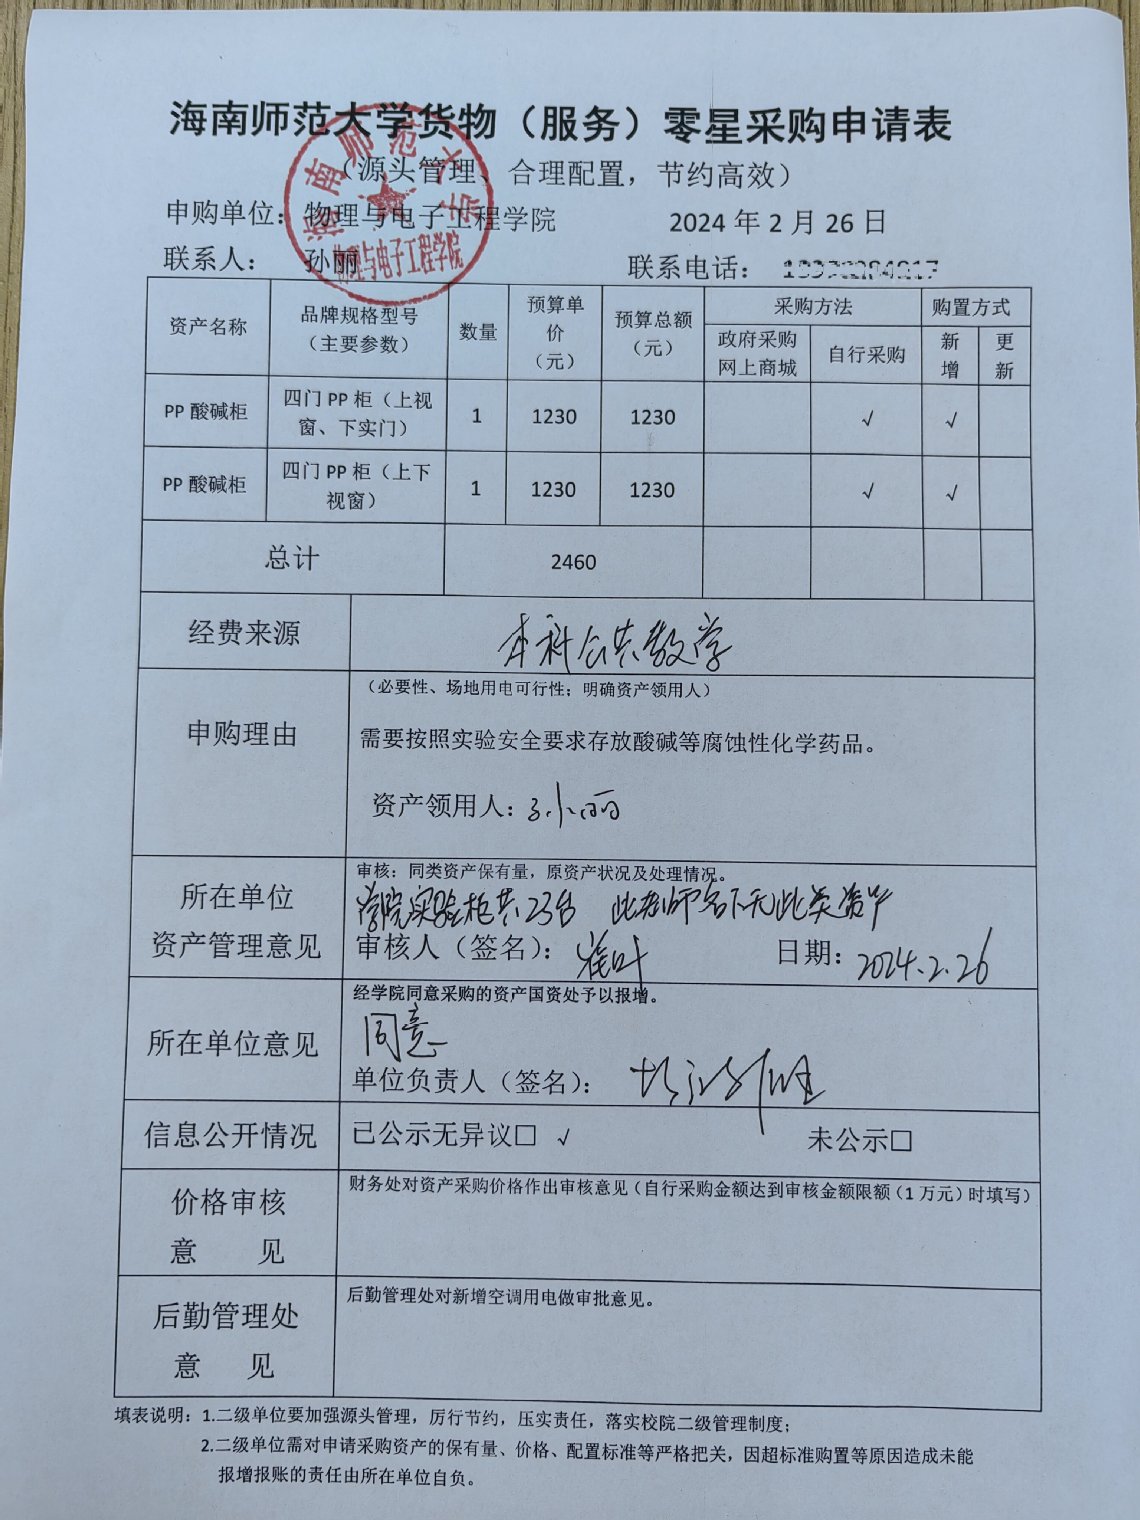 海南师范大学货物（服务）零星采购申请表
（源头管理、合理配置，节约高效）
申购单位：物理与电子工程学院 2024 年 2 月 26 日
联系人： 孙丽 联系电话：
海南师范大学
物理与电子工程学院
资产名称 品牌规格型号（主要参数） 数量 预算单价（元） 预算总额（元） 采购方法 购置方式
政府采购网上商城 自行采购 新增 更新
PP 酸碱柜 四门 PP 柜（上视窗、下实门） 1 1230 1230 √ √
PP 酸碱柜 四门 PP 柜（上下视窗） 1 1230 1230 √ √
总计 2460
经费来源 本科公共教学
申购理由 （必要性、场地用电可行性；明确资产领用人）
需要按照实验安全要求存放酸碱等腐蚀性化学药品。
资产领用人：孙丽
所在单位
资产管理意见
审核：同类资产保有量，原资产状况及处理情况。
学院实验柜共23台 此老师名下无此类资产
审核人（签名）：崔叶 日期：2024.2.26
所在单位意见 经学院同意采购的资产国资处予以报增。
同意
单位负责人（签名）：
信息公开情况 已公示无异议□ √ 未公示□
价格审核
意 见
财务处对资产采购价格作出审核意见（自行采购金额达到审核金额限额（1 万元）时填写）
后勤管理处
意 见
后勤管理处对新增空调用电做审批意见。
填表说明：1.二级单位要加强源头管理，厉行节约，压实责任，落实校院二级管理制度；
2.二级单位需对申请采购资产的保有量、价格、配置标准等严格把关，因超标准购置等原因造成未能
报增报账的责任由所在单位自负。